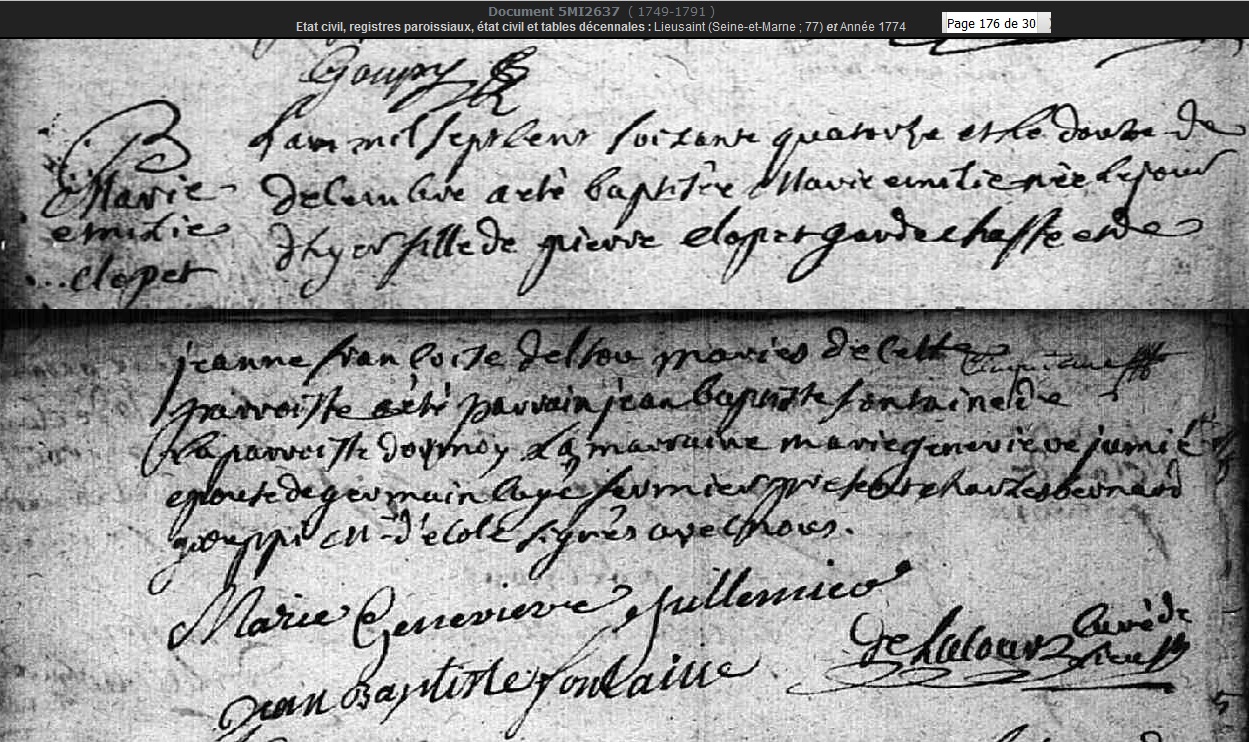 Document 5MI2637 ( 1749-1791 )
Etat civil, registres paroissiaux, état civil et tables décennales : Lieusaint (Seine-et-Marne ; 77) et Année 1774
Page 176 de 30
Goupy
B
Marie
emilie
clopet
Lan mil sept cent soixante quatorze et le douze de
decembre a eté baptisée Marie emilie née le jour
d'hyer fille de pierre clopet garde chasse et de
jeanne francoise mariés de cette
parroisse a eté parrain jean baptiste fontaine de
la parroisse dormoy la marraine marie genevieve
epouse de germain fermier charles bernard
gouppi d'école signés avec nous.
Marie Genevieve Guillemieo
Jean Baptiste fontaine
de Latour curé de
Lieus